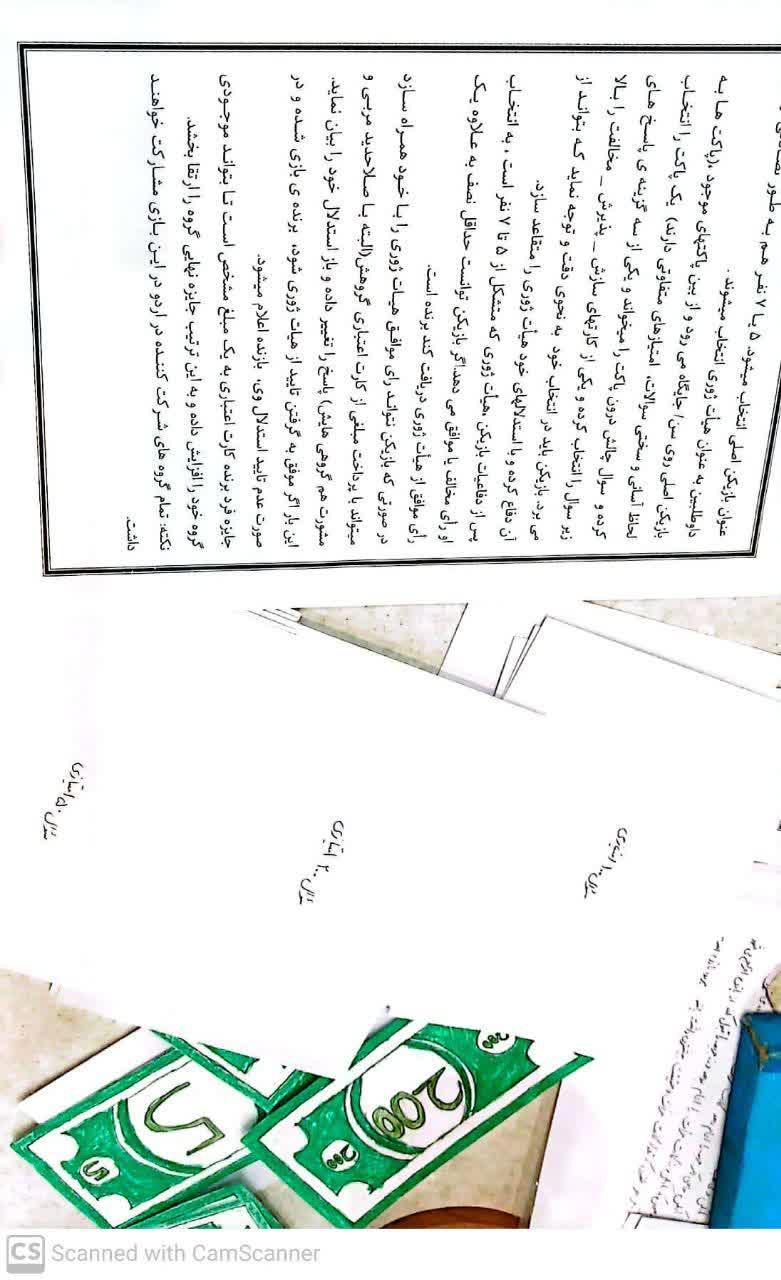 عنوان بازیکن اصلی انتخاب میشود. ۵ یا ۷ نفر هم به طور
داوطلبین به عنوان هیأت ژوری انتخاب میشوند.
بازیکن اصلی روی سن/ جایگاه می رود و از بین پاکتهای موجود (پاکت ها به
لحاظ آسانی و سختی سوالات، امتیازهای متفاوتی دارند) یک پاکت را انتخاب
کرده و سوال چالش درون پاکت را میخواند و یکی از سه گزینه ی پاسخ های
زیر سوال را انتخاب کرده و یکی از کارتهای سازش _ پذیرش _ مخالفت را بالا
می برد. بازیکن باید در انتخاب خود به نحوی دقت و توجه نماید که بتواند از
آن دفاع کرده و با استدلالهای خود هیأت ژوری را متقاعد سازد.
پس از دفاعیات بازیکن، هیأت ژوری که متشکل از ۵ تا ۷ نفر است ، به انتخاب
او رأی مخالف یا موافق می دهد.اگر بازیکن توانست حداقل نصف به علاوه یک
رأی موافق از هیأت ژوری دریافت کند برنده است.
در صورتی که بازیکن نتواند رای موافق هیات ژوری را با خود همراه سازد
میتواند با پرداخت مبلغی از کارت اعتباری گروهش(البته با صلاحدید مربی و
مشورت هم گروهی هایش) پاسخ را تغییر داده و باز استدلال خود را بیان نماید.
این بار اگر موفق به گرفتن تایید از هیات ژوری شود، برنده ی بازی شده و در
صورت عدم تایید استدلال وی، بازنده اعلام میشود.
جایزه فرد برنده کارت اعتباری به یک مبلغ مشخص است تا بتواند موجودی
گروه خود را افزایش داده و به این ترتیب جایزه نهایی گروه را ارتقا بخشد.
نکته: تمام گروه های شرکت کننده در اردو در این بازی مشارکت خواهند
داشت.
سوال ۱۰ امتیازی
سوال ۲۰ امتیازی
سوال ۵۰ امتیازی
200
200
200
5
5
CS Scanned with CamScanner